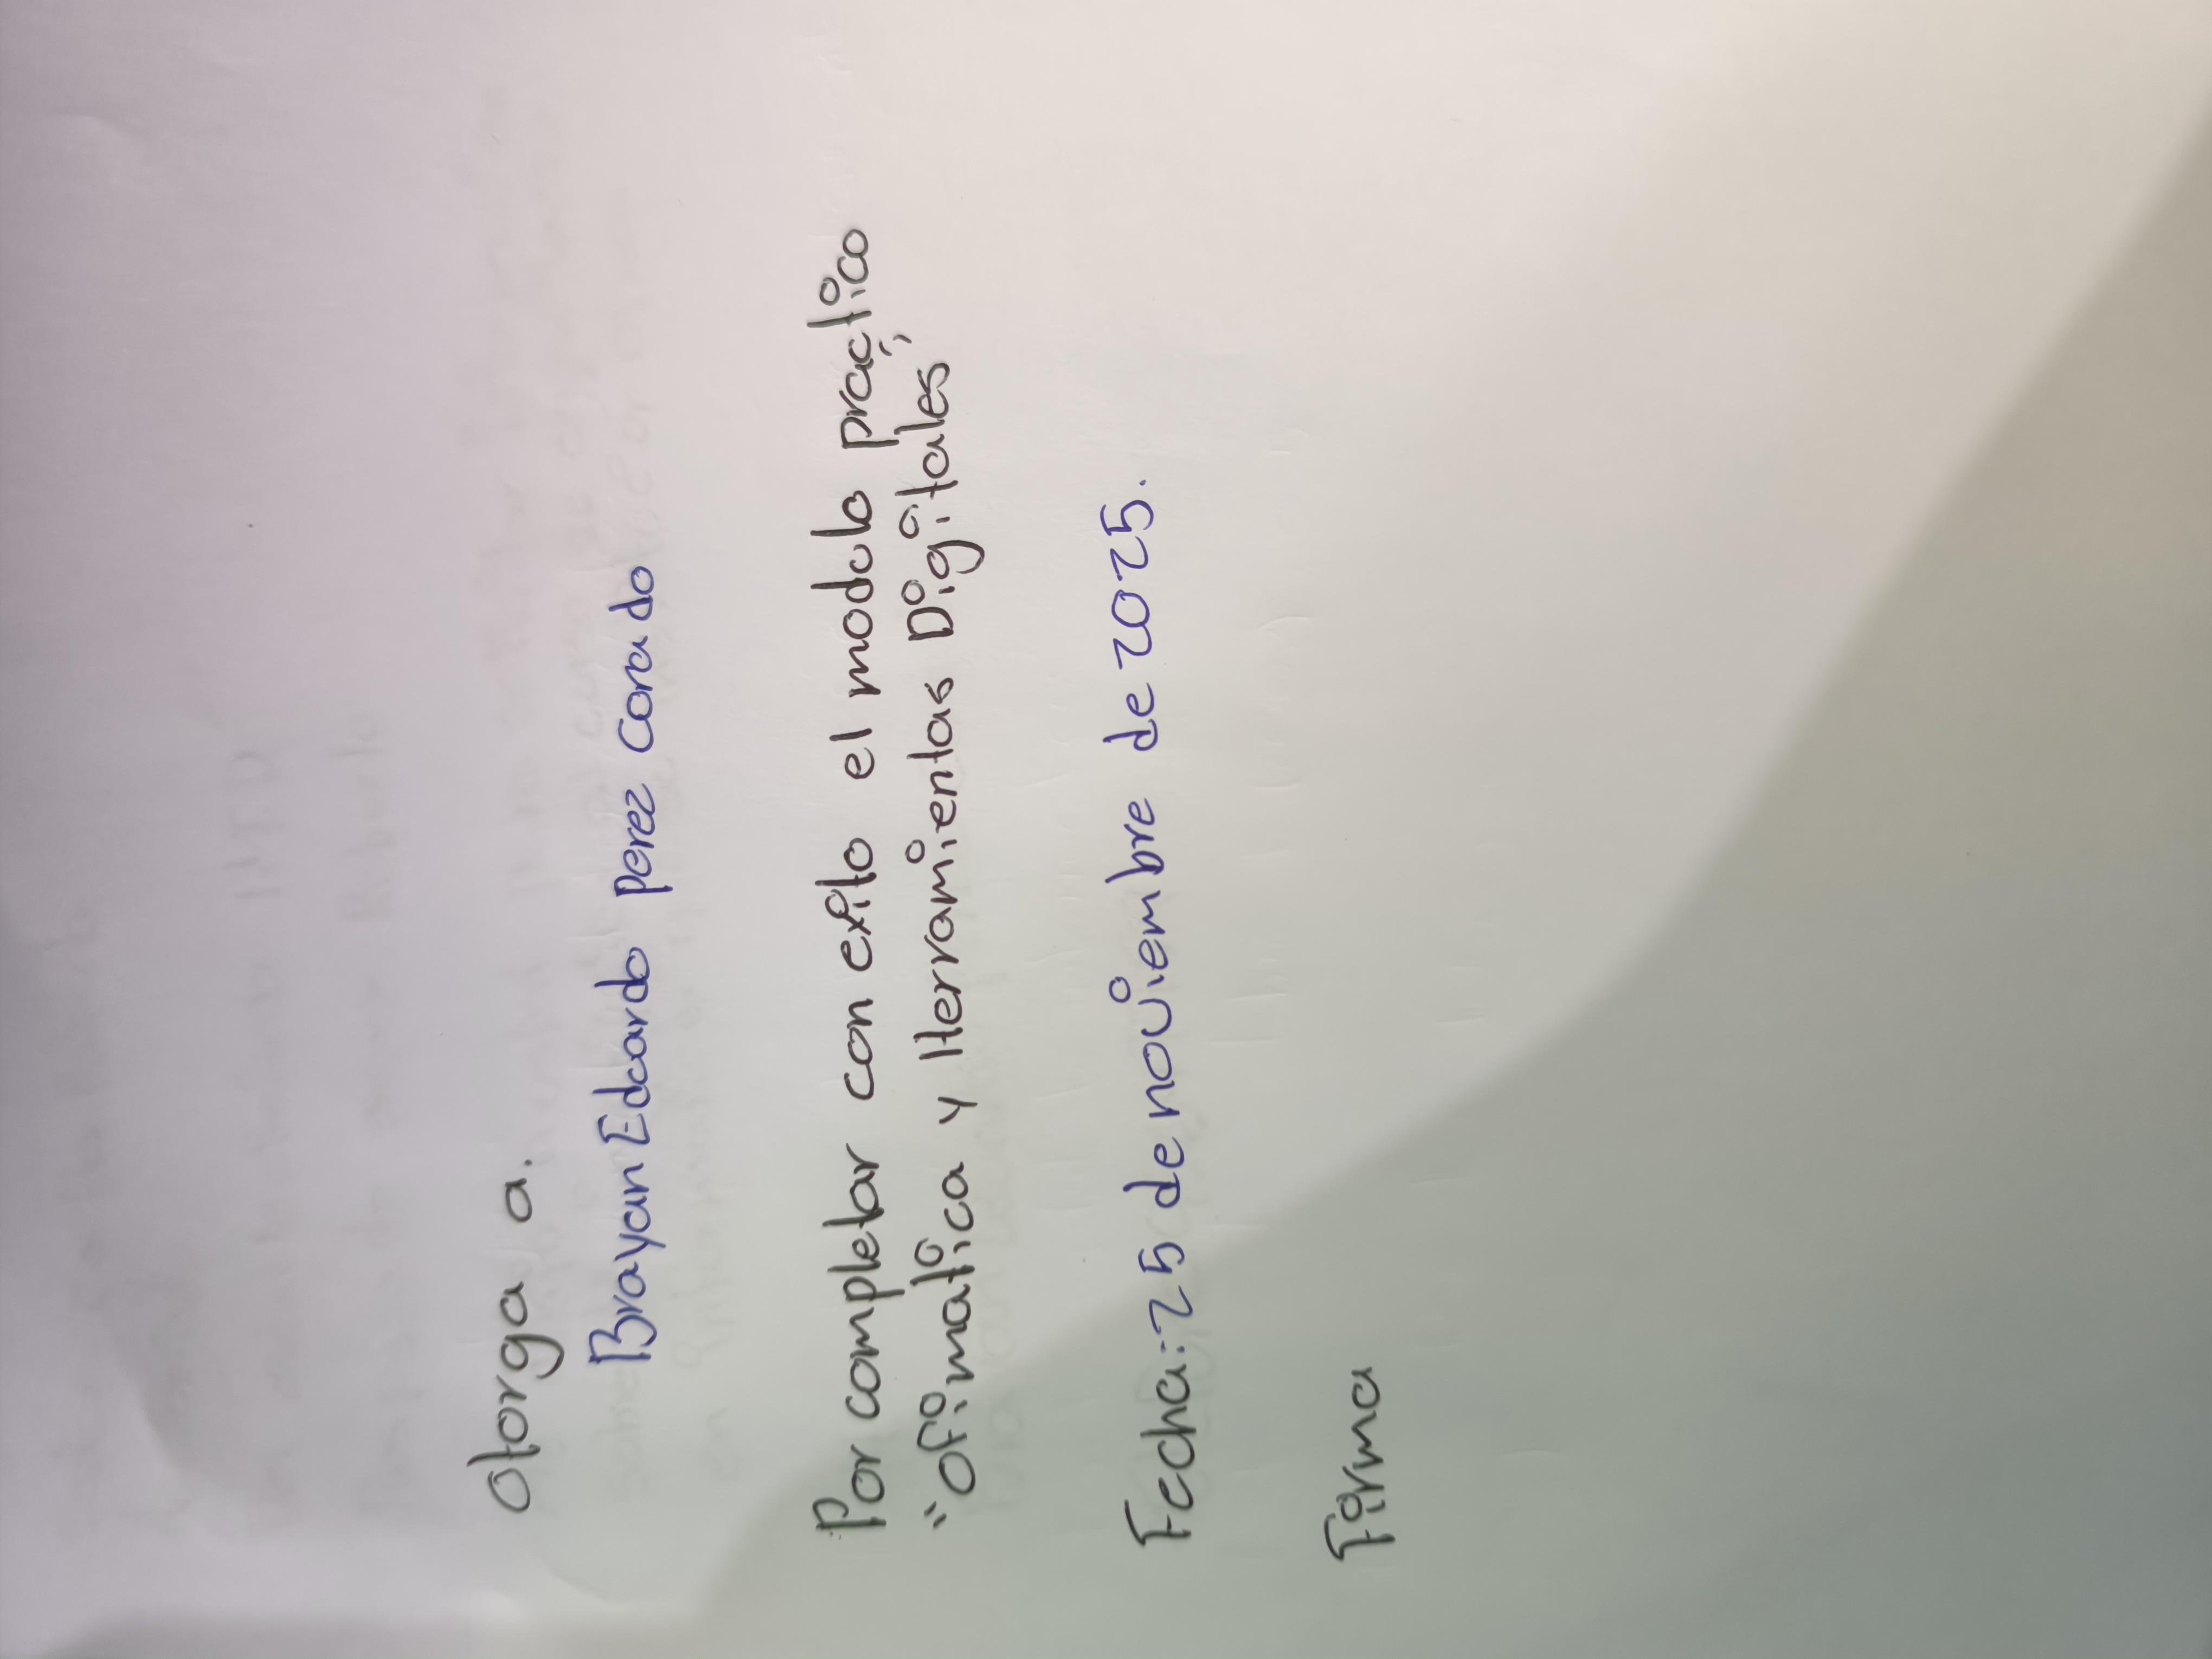 Otorga a.
Brayan Eduardo perez Corado
Por completar con exito el modulo practico
"Ofimatica y Herramientas Digitales"
Fecha: 25 de noviembre de 2025.
Firma